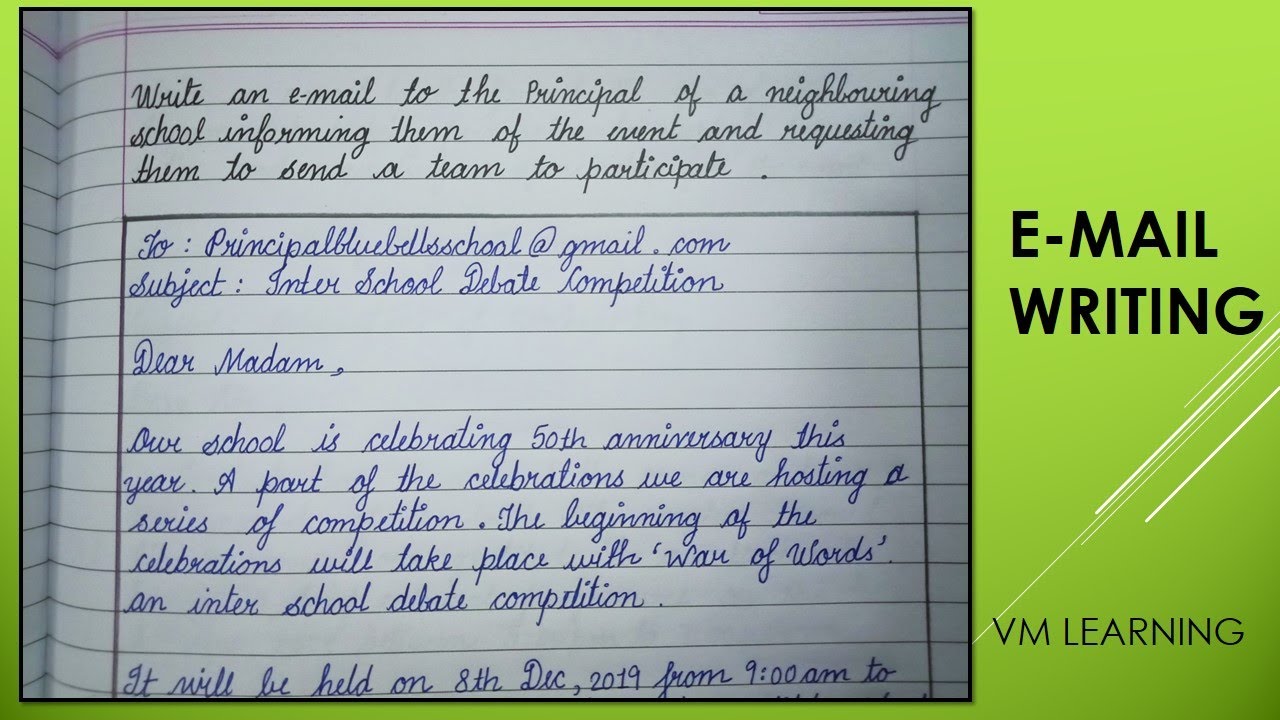 Write an e-mail to the Principal of a neighbouring
school informing them of the event and requesting
them to send a team to participate .
To : Principalbluebellsschool@gmail.com
Subject : Inter School Debate Competition
Dear Madam,
Our school is celebrating 50th anniversary this
year. A part of the celebrations we are hosting a
series of competition. The beginning of the
celebrations will take place with 'War of Words'.
an inter school debate compdition.
It will be held on 8th Dec, 2019 from 9:00am to
E-MAIL
WRITING
VM LEARNING